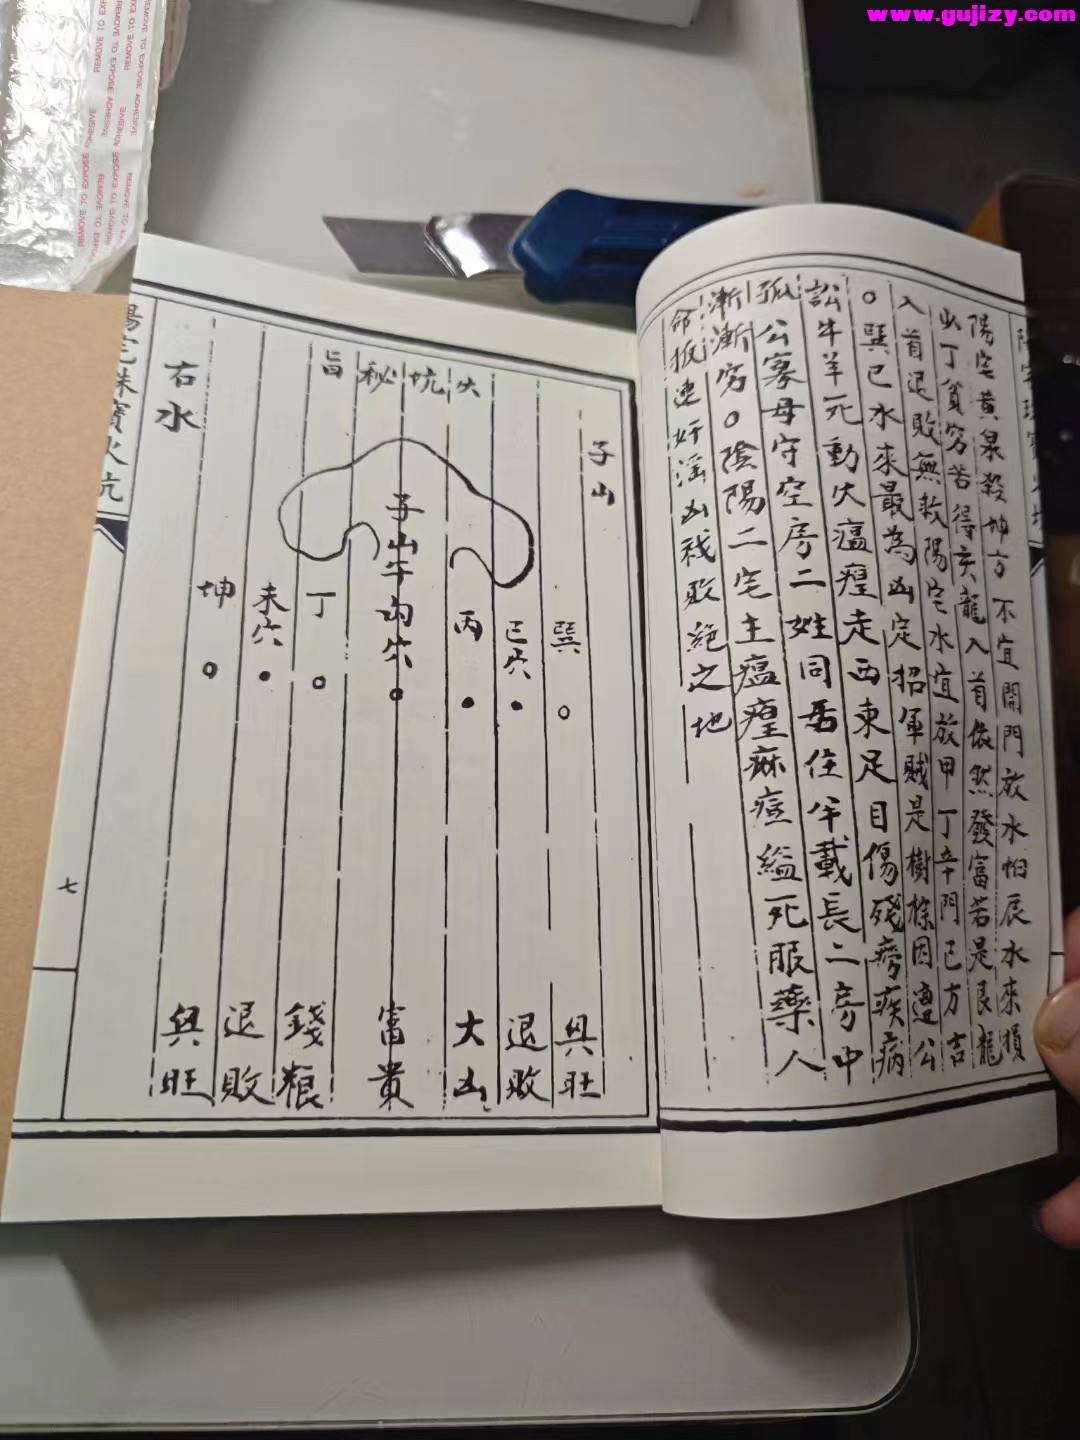 www.gujizy.com
陽宅黃泉殺坤方不宜開門放水怕辰水來損
出丁貧窮若得亥龍入首依然發富若是艮龍
入首退敗無救陽宅水宜放甲丁辛門巳方吉
○巽巳水來最為凶定招軍賊是樹棕因遭公
訟牛羊死動火瘟瘟走西東足目傷殘癆疾病
孤公寡母守空房二姓同居住半載長二房中
漸漸窮○陰陽二宅主瘟瘟麻痘縊死服藥人
命报速奸淫凶禍敗絕之地
子山
火坑秘旨
右水
子山午向穴
巽
巳穴
丙
丁
未穴
坤
興旺
退敗
大凶
富貴
錢粮
退敗
興旺
七
REMOVE TO EXPOSE ADHESIVE